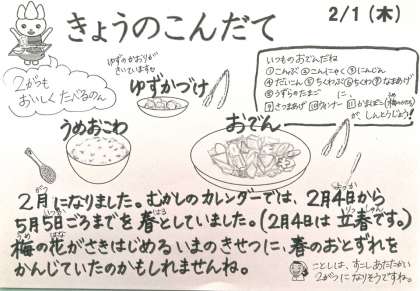 きょうのこんだて
2/1(木)
2がつも
おいしく たべるのん
ゆずのかおりが
きいています
ゆずかづけ
いつものおでんだね
①こんぶ ②こんにゃく ③にんじん
④だいこん ⑤ちくわぶ ⑥ちくわ ⑦なまあげ
⑧うずらのたまご に、
⑨さつまあげ ⑩ウィンナー ⑪かまぼこ
が、しんとうじょう!
うめおこわ
おでん
2月になりました。むかしのカレンダーでは、2月4日から
5月5日ごろまでを春としていました。(2月4日は立春です。)
梅の花がさきはじめるいまのきせつに、春のおとずれを
かんじていたのかもしれませんね。
ことしは、すこしあたたかい
2がつになりそうですね。